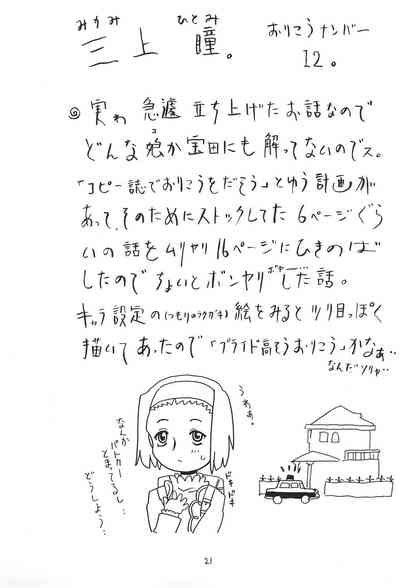 みかみ ひとみ
三上 瞳。
おりこうナンバー
12。
◎実わ 急遽 立ち上げたお話なので
どんな娘か宝田にも解ってないのでス。
コ
「コピー誌でおりこうをだそう」とゆう計画が
あって、そのためにストックしてた 6ページぐら
いの話をムリヤリ16ページにひきのば
したので ちょいとボンヤリした話。
ボヤ〜
キャラ設定の(つもりのラクガキ)絵をみるとツリ目っぽく
描いてあったので「プライド高そうおりこう」かなぁ‥
なんだソリャ‥
うわぁ。
なんか
パトカー
とまってるし…
どうしよう…
ドキ
ドキ
21